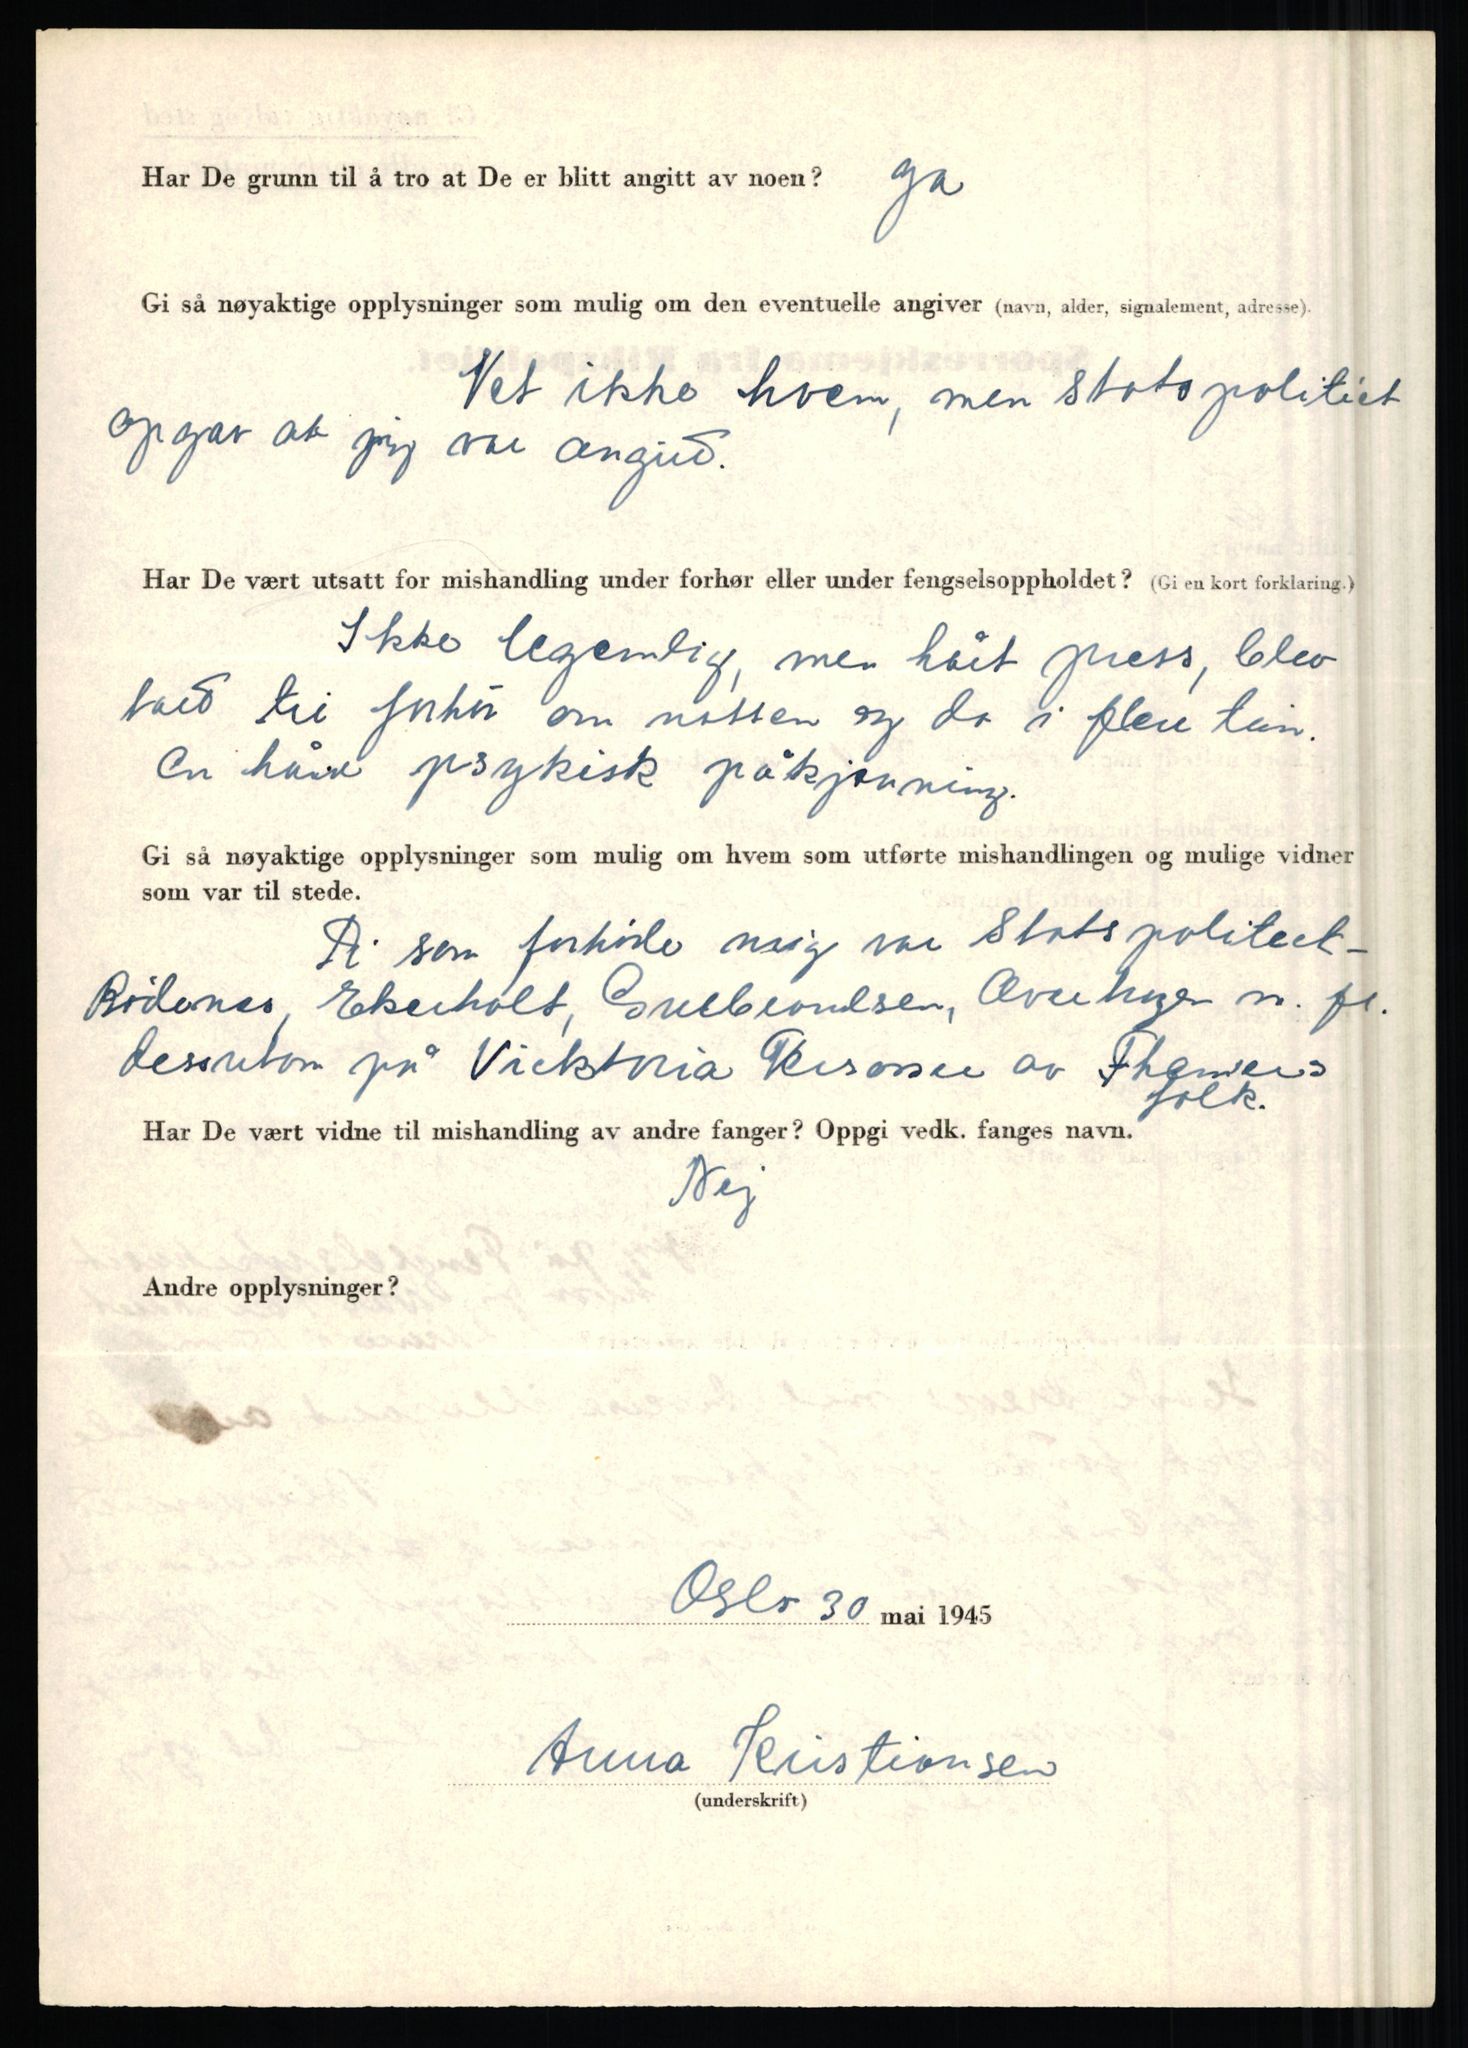 Har De grunn til å tro at De er blitt angitt av noen? Ja
Gi så nøyaktige opplysninger som mulig om den eventuelle angiver (navn, alder, signalement, adresse).
Vet ikke hvem, men Statspolitiet
opgav at jeg var angitt.
Har De vært utsatt for mishandling under forhør eller under fengselsoppholdet? (Gi en kort forklaring.)
Ikke legemlig, men hårt press, blev
tatt til forhør om natten og da i flere tim.
En hård psykisk påkjenning.
Gi så nøyaktige opplysninger som mulig om hvem som utførte mishandlingen og mulige vidner
som var til stede.
De som forhørte mig var Statspolitiet-
Rödenes, Ekerholt, Gulbrandsen, m. fl.
dessutom på Vicktoria Terasse av
folk.
Har De vært vidne til mishandling av andre fanger? Oppgi vedk. fanges navn.
Nej
Andre opplysninger?
Oslo 30 mai 1945
Anna Kristiansen
(underskrift)